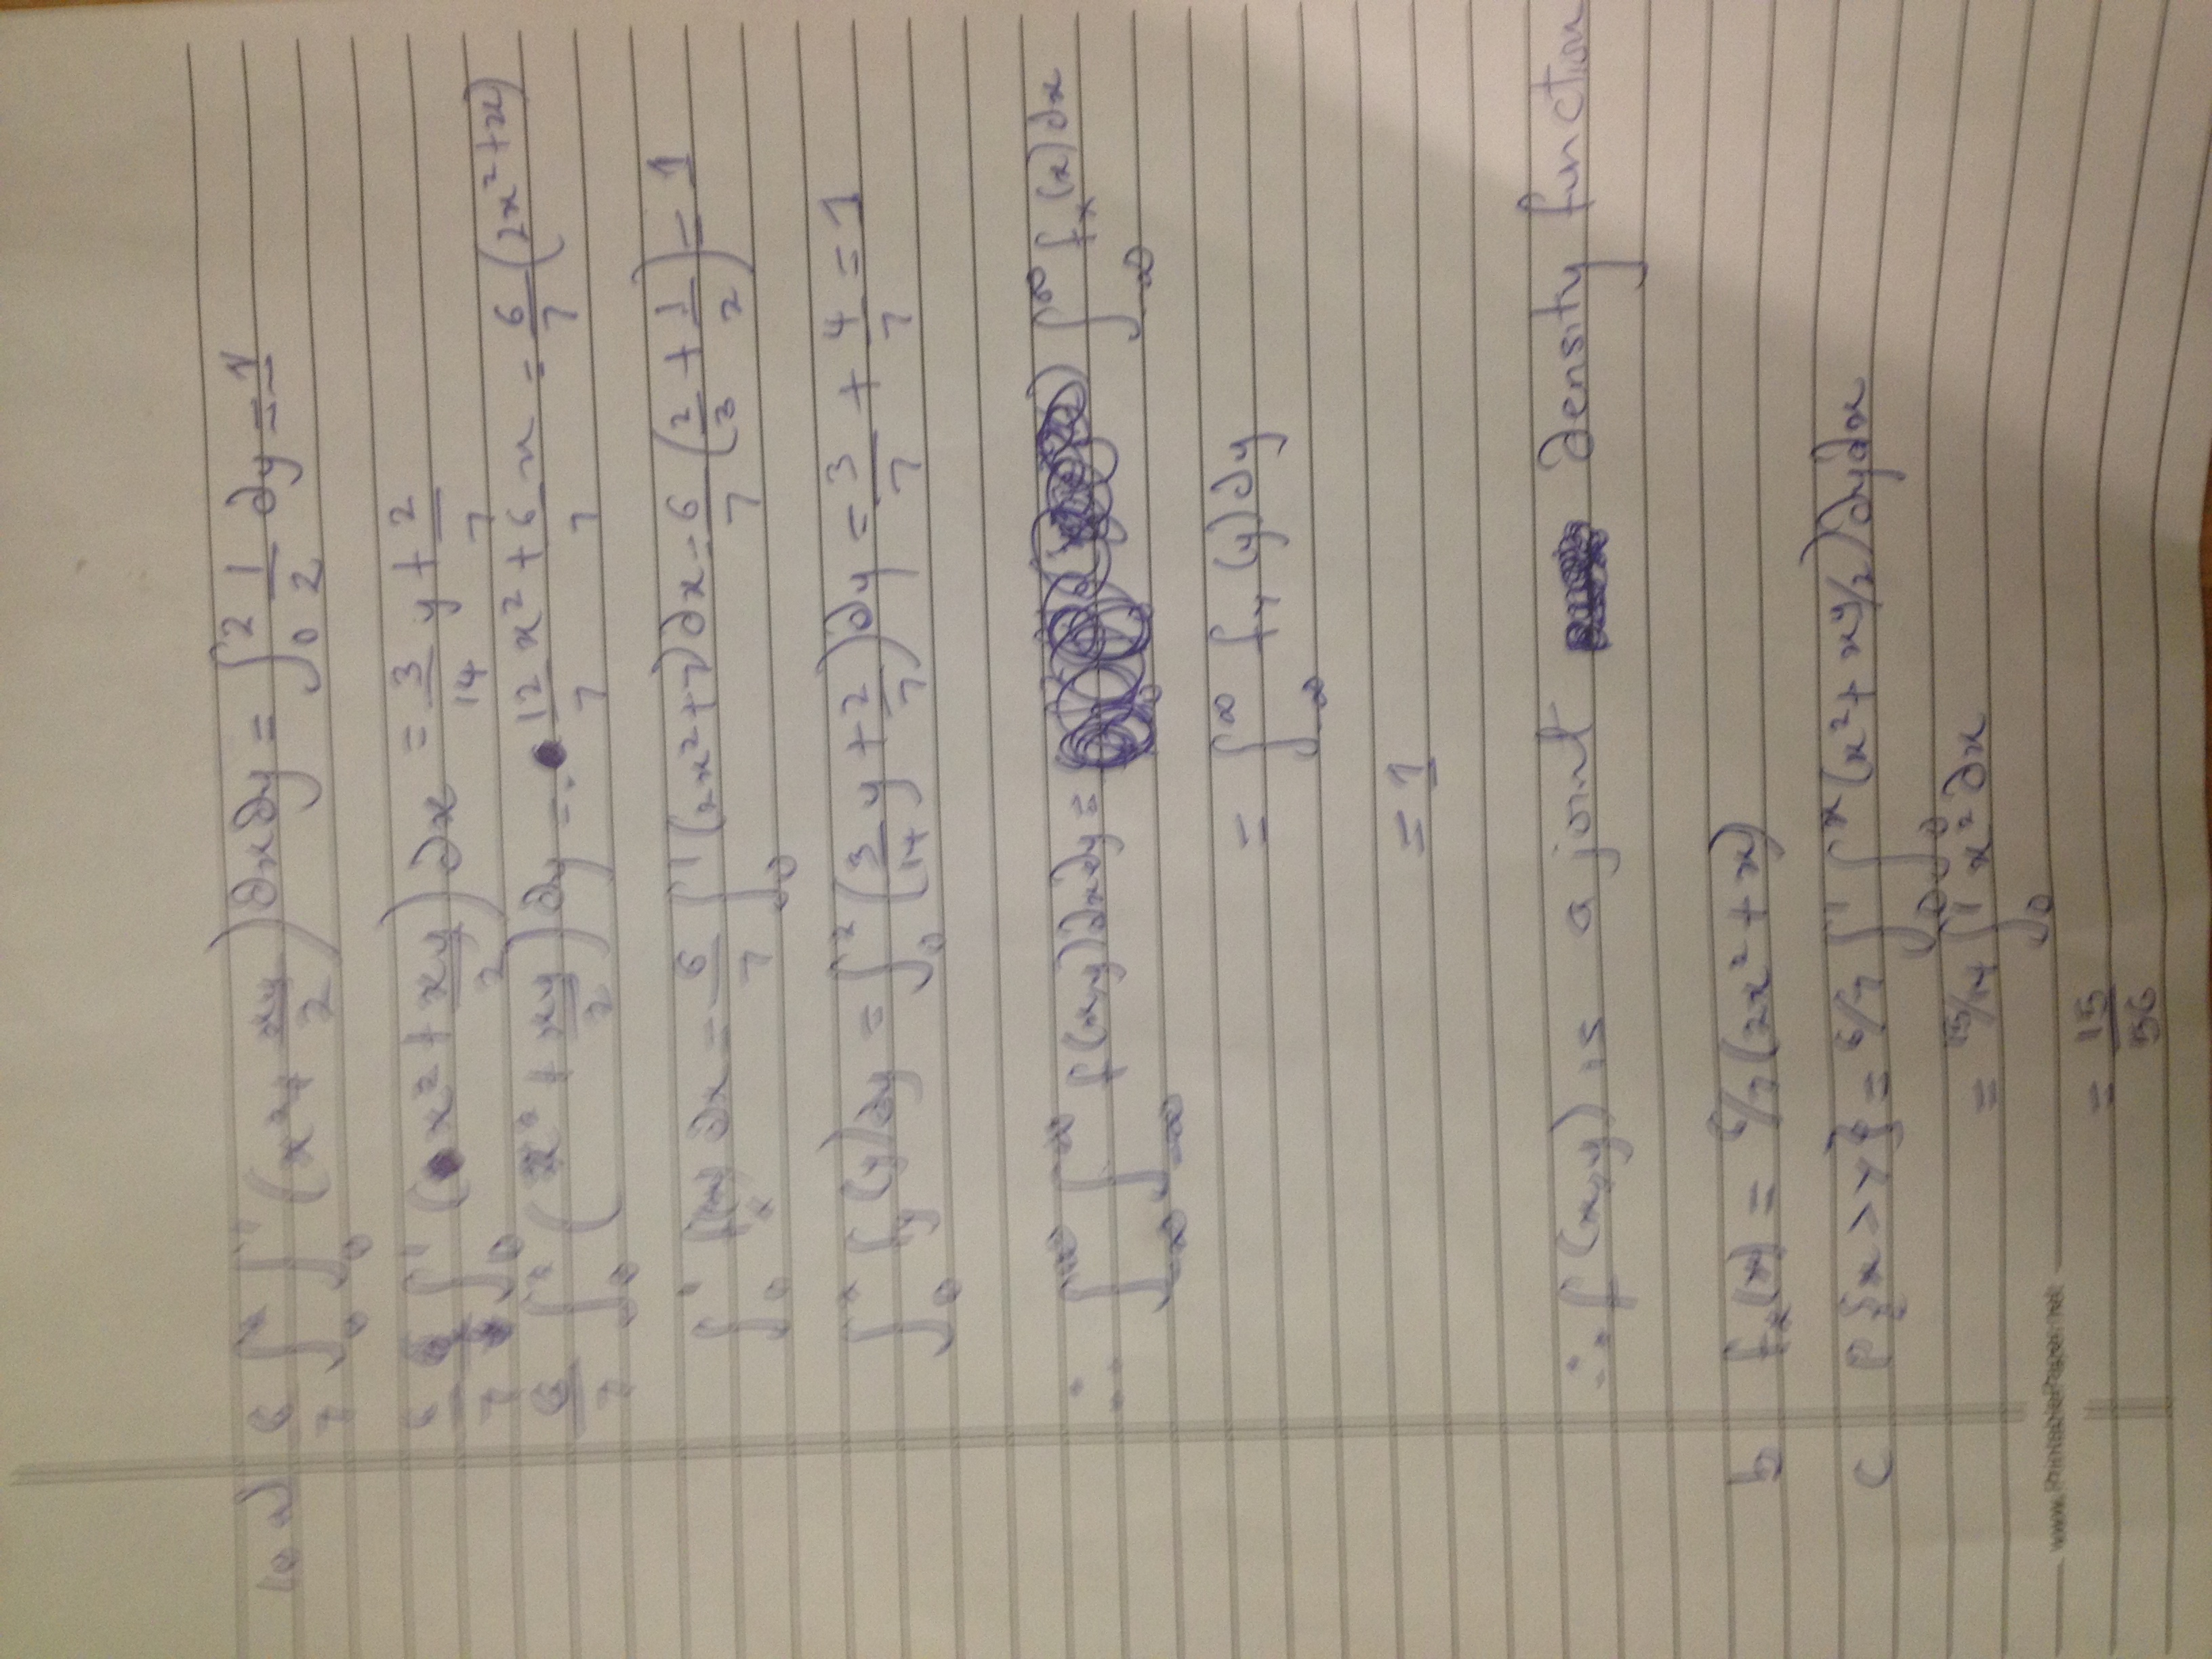 10 a) 6/7 ∫₀² ∫₀¹ (x² + xy/2) ∂x∂y = ∫₀² 1/2 ∂y = 1
6/7 ∫₀¹ (x² + xy/2) ∂x = 3/14 y + 2/7
6/7 ∫₀² (x² + xy/2) ∂y = 12/7 x² + 6/7 x = 6/7 (2x² + x)
∫₀¹ fₓ(x) ∂x = 6/7 ∫₀¹ (2x² + 7) ∂x = 6/7 (2/3 + 1/2) = 1
∫₀² f_y(y) ∂y = ∫₀² (3/14 y + 2/7) ∂y = 3/7 + 4/7 = 1
∴ ∫_-∞^∞ ∫_-∞^∞ f(x,y) ∂x∂y = ∫_-∞^∞ fₓ(x) ∂x
= ∫_-∞^∞ f_Y(y) ∂y
= 1
∴ f(x,y) is a joint density function
b fₓ(x) = 6/7 (2x² + x)
c P{x > Y} = 6/7 ∫₀¹ ∫₀ˣ (x² + xy/2) ∂y∂x
= 15/14 ∫₀¹ x² ∂x
www.PrintablePaper.net
= 15/56